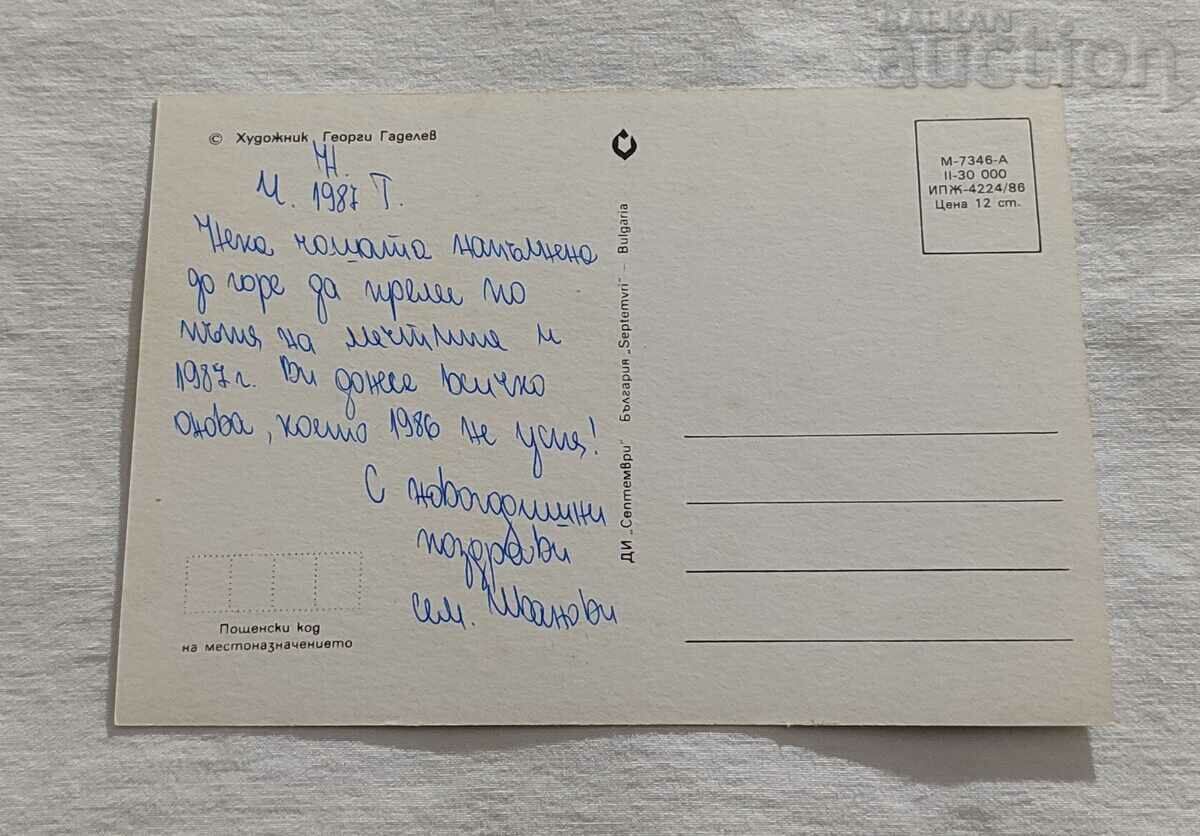 BALKAN
auction
© Художник Георги Гаделев
Ч.
М. 1987 Г.
Нека чашата напълнена
до горе да прелее по
пътя на мечтите и
1987 г. Ви донесе всичко
онова, което 1986 не успя!
С новогодишни
поздрави
сем. Иванови
Пощенски код
на местоназначението
ДИ „Септември" България „Septemvri" — Bulgaria
М-7346-А
II-30 000
ИПЖ-4224/86
Цена 12 ст.